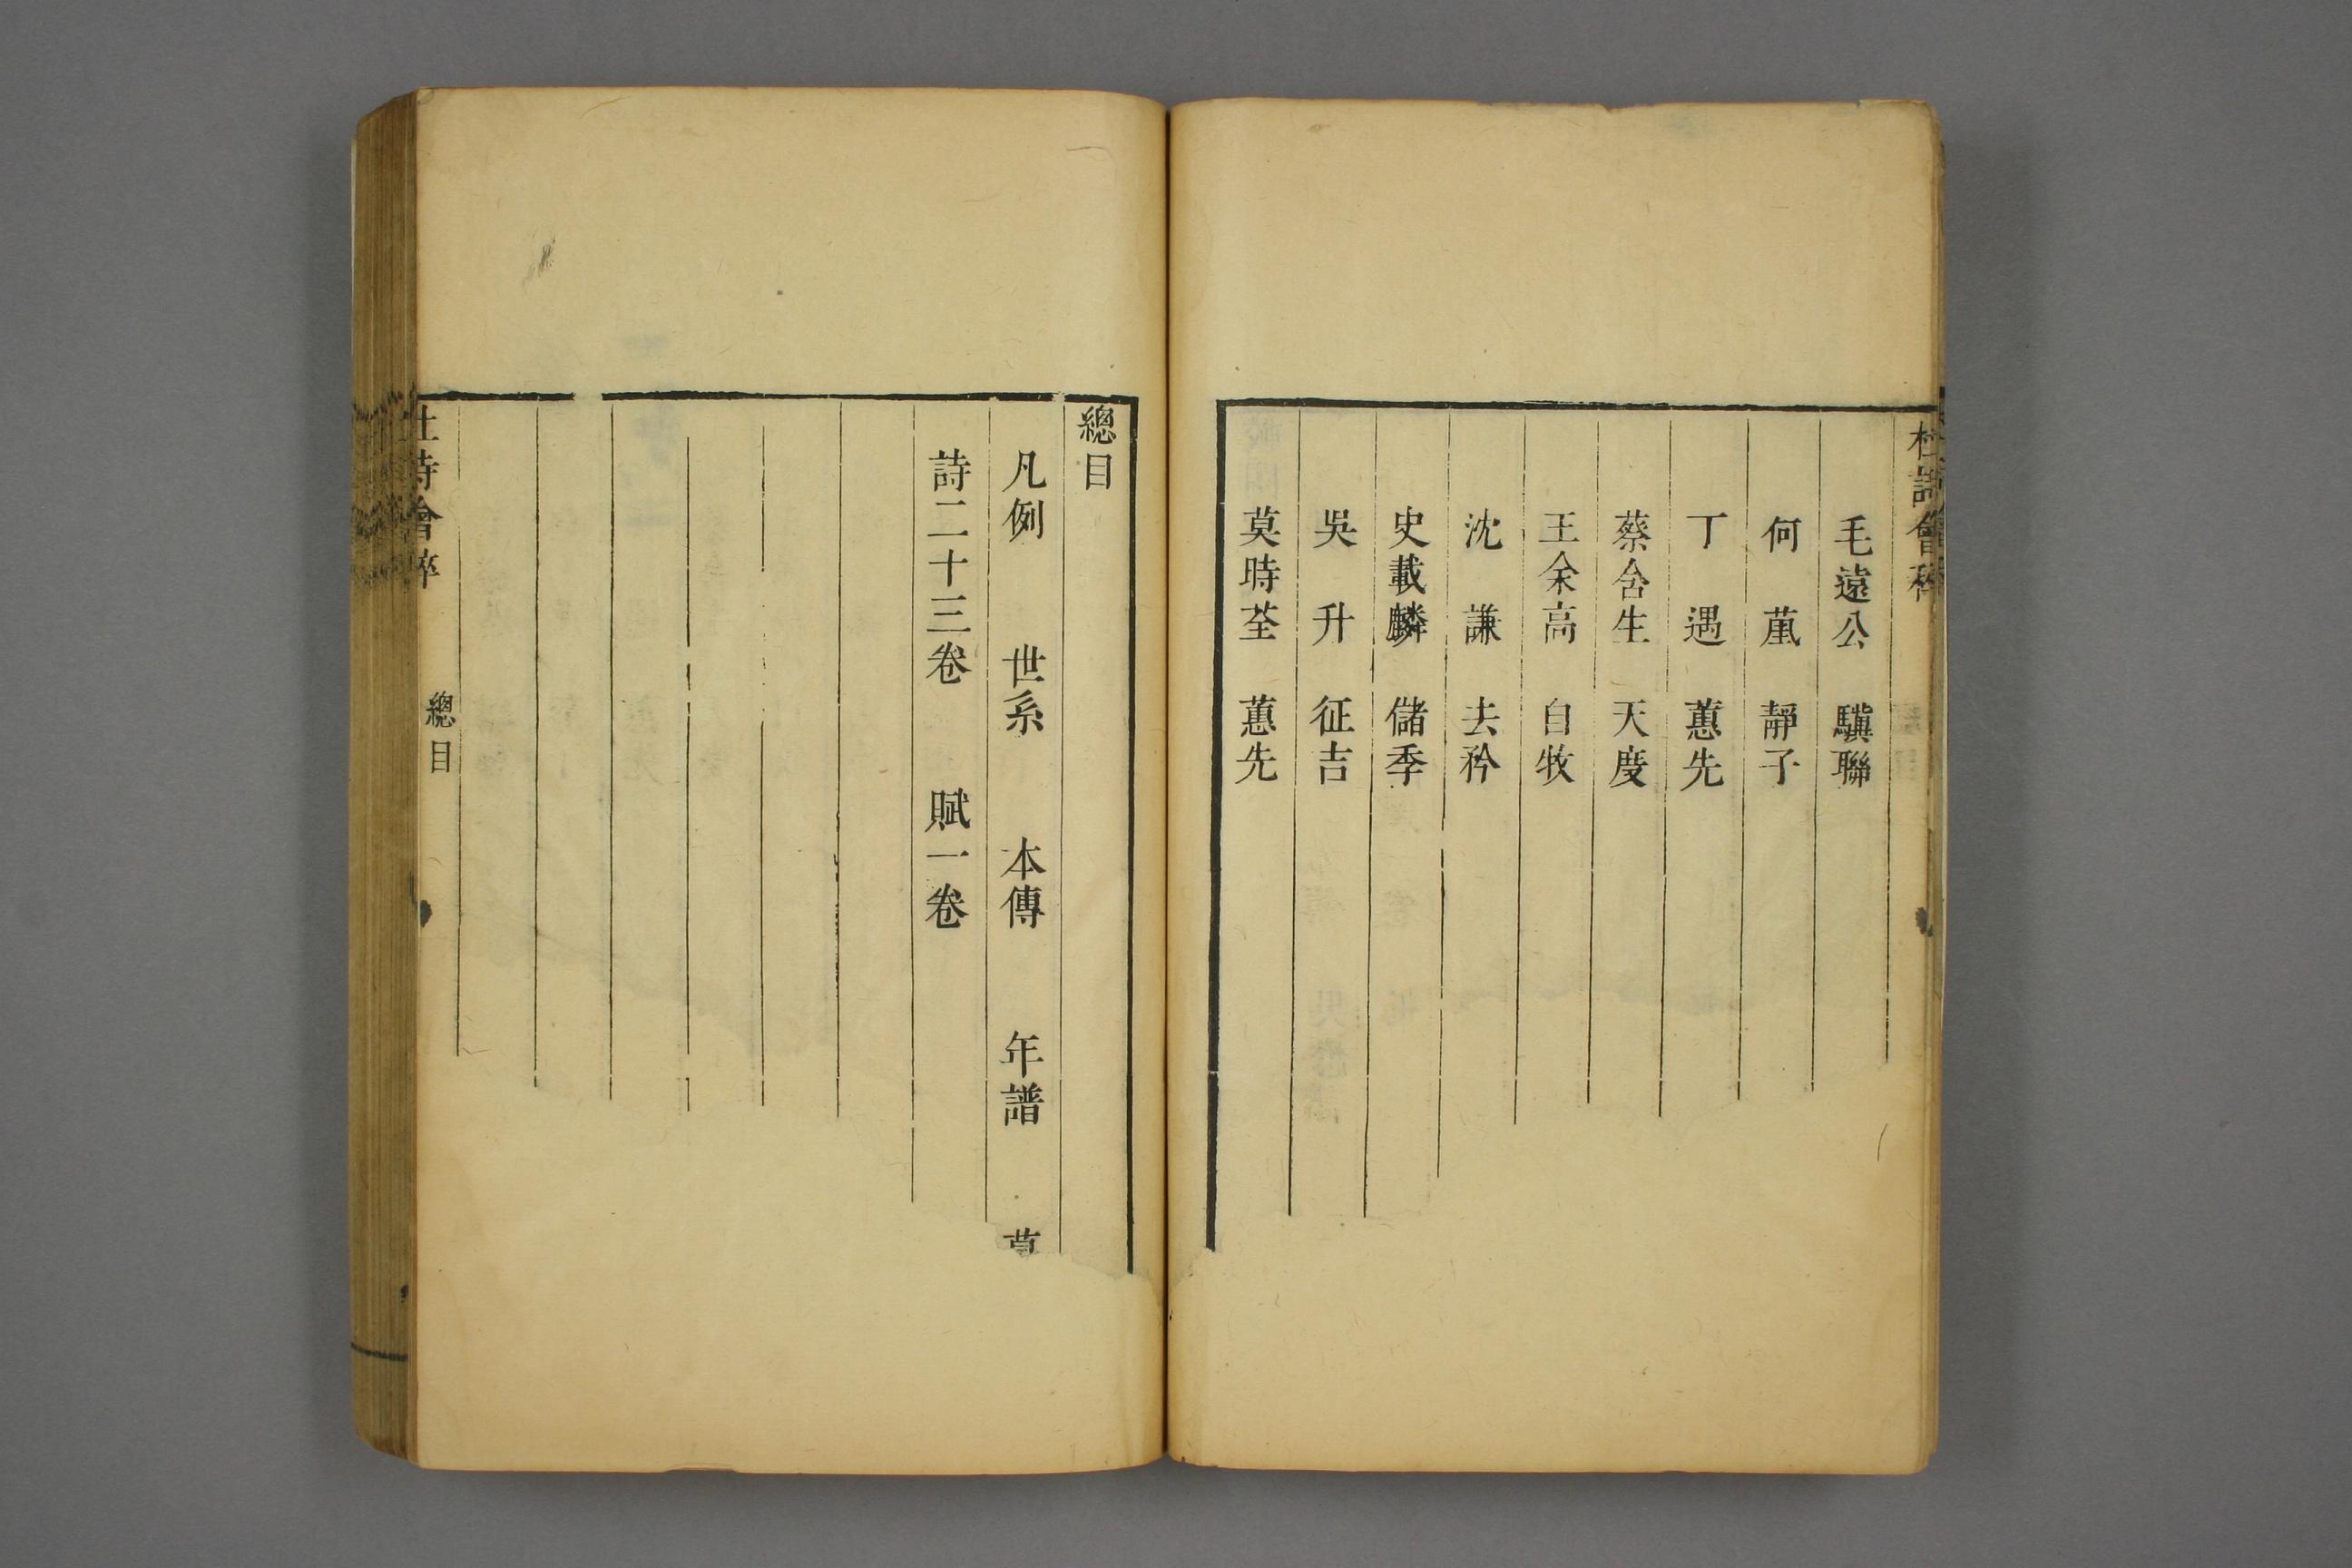 杜詩會稡
毛遠公　驥聯
何　葻　靜子
丁　遇　蕙先
蔡含生　天度
王余高　自牧
沈　謙　去矜
史載麟　儲季
吳　升　征吉
莫時荃　蕙先
總目
凡例　世系　本傳　年譜
詩二十三卷　賦一卷
杜詩會稡　總目